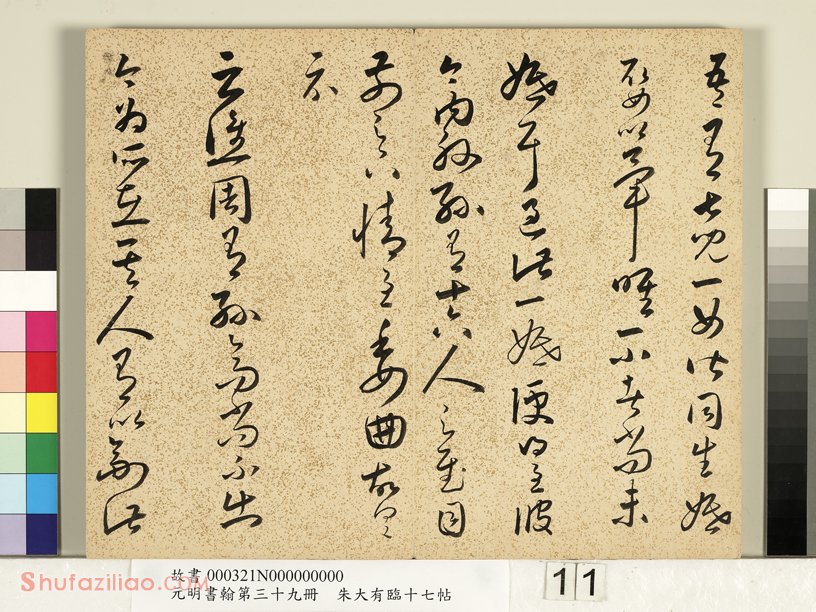 吾有七兒一女皆同生婚
娶以畢唯一小者尚未
婚耳過此一婚便得至彼
今內外孫有十六人足慰目
前足下情至委曲故具
示
云譙周有孫高尚不出
今為所在其人有以副此
故書 000321N000000000
元明書翰第三十九冊　朱大有臨十七帖
11
Shufaziliao.COM